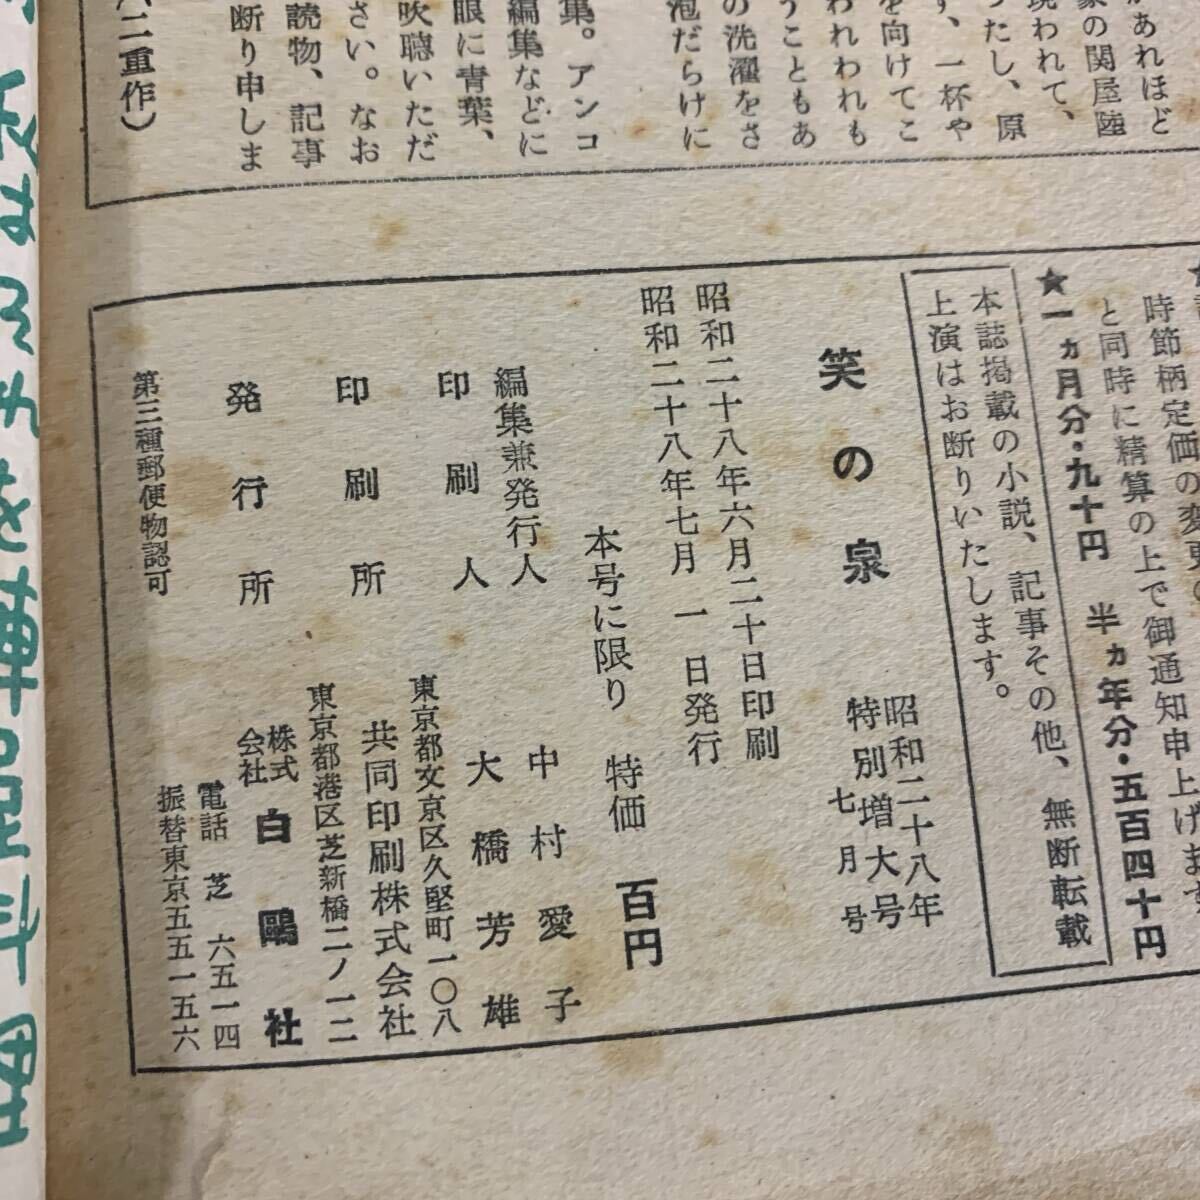 があれほど
家の関屋陸
われて、
ったし、原
す、一杯や
を向けてこ
われわれも
うこともあ
の洗濯をさ
泡だらけに
集。アンコ
編集などに
眼に青葉、
吹聴いただ
さい。なお
読物、記事
断り申しま
(二重作)
時節柄定価の変更
と同時に精算の上で御通知申上げます
★一ヵ月分・九十円 半ヵ年分・五百四十円
本誌掲載の小説、記事その他、無断転載
上演はお断りいたします。
笑の泉
昭和二十八年
特別増大号
七月号
昭和二十八年六月二十日印刷
昭和二十八年七月一日発行
本号に限り 特価 百円
編集兼発行人 中村愛子
印刷人 大橋芳雄
東京都文京区久堅町一〇八
印刷所 共同印刷株式会社
東京都港区芝新橋二ノ一二
発行所 株式会社 白鷗社
電話 芝 六五一四
振替東京五五一五六
第三種郵便物認可